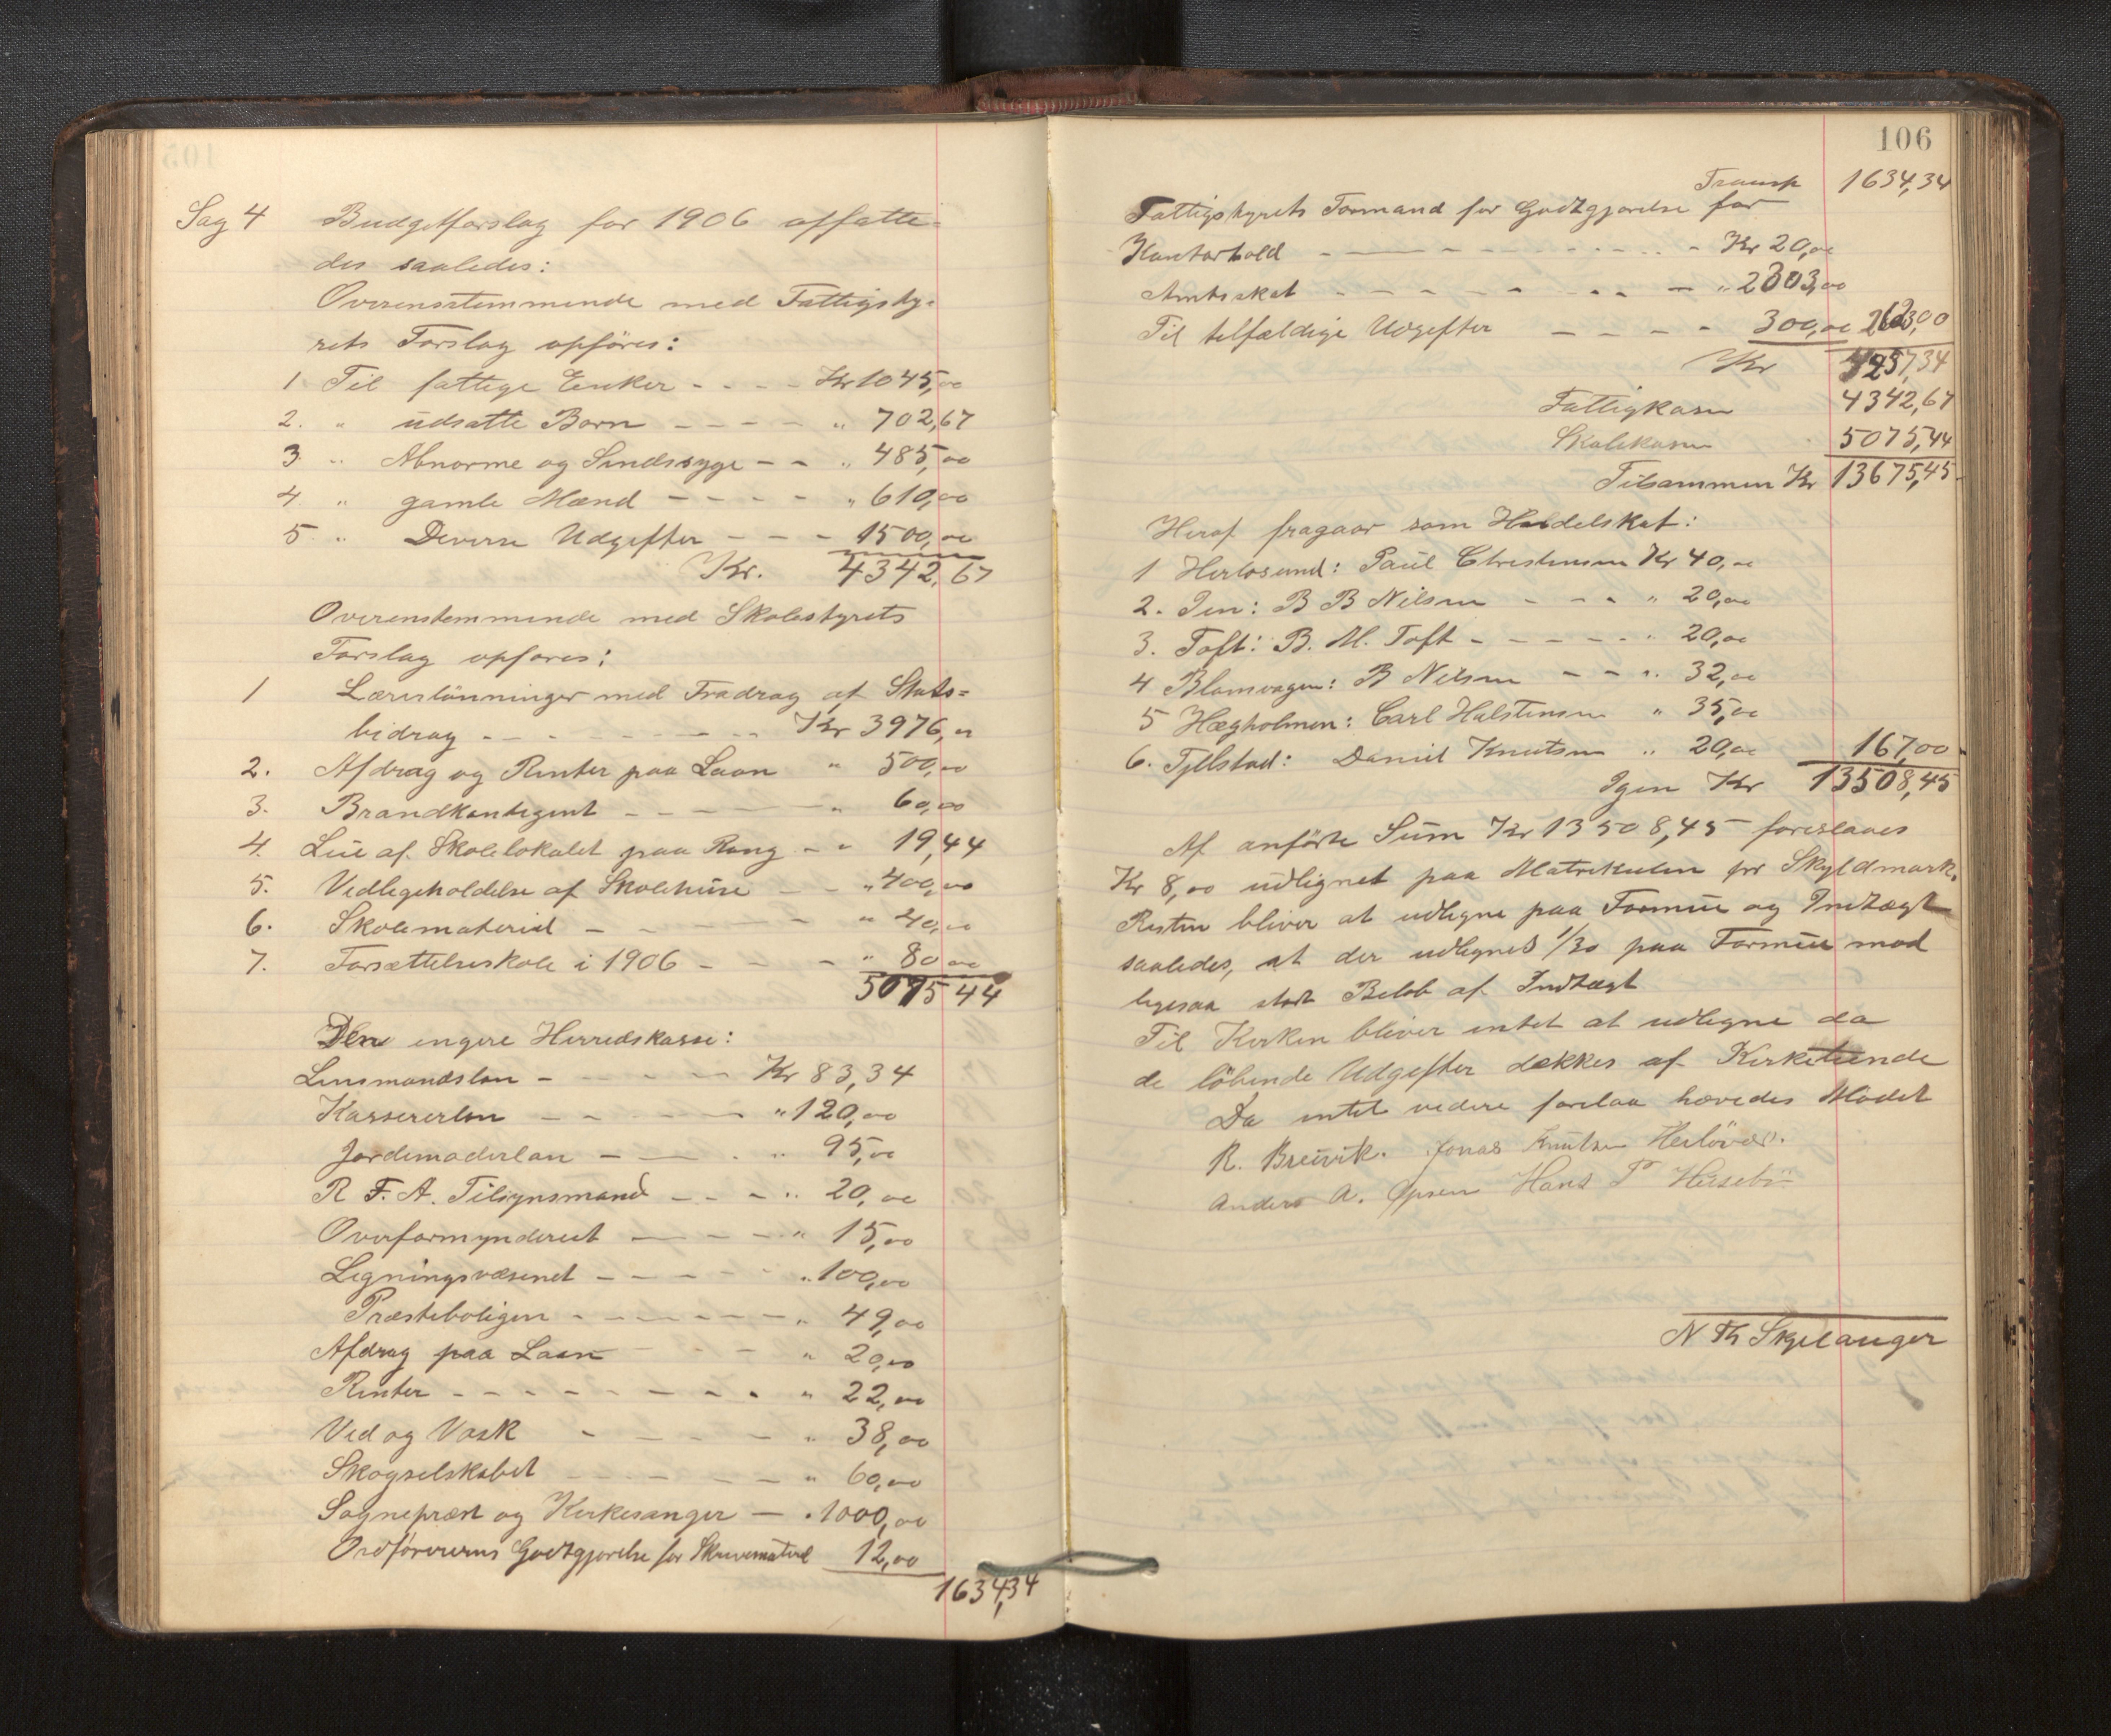 Sag 4 Budgetforslag for 1906 affatte-
des saaledes:
Overensstemmende med Fattigsty-
rets Forslag opföres:
1 Til fattige Enker - - - - Kr 1045,00
2. " udsatte Börn - - - - " 702,67
3 " Abnorme og Sindssyge - - " 485,00
4. " gamle Mænd - - - - " 610,00
5. " Diverse Udgifter - - - 1500,00
Kr. 4342,67
Overenstemmende med Skolestyrets
Forslag opfores:
1 Lærerlönninger med Fradrag af Stats=
bidrag - - - - - - - Kr 3976,00
2. Afdrag og Renter paa Laan " 500,00
3. Brandkontigent - - - - " 60,00
4. Leie af Skolelokalet paa Rong - " 19,44
5. Vedligeholdelse af Skolehuse - - " 400,00
6. Skolemateriel - - - - - " 40,00
7. Forsættelseskole i 1906 - - - " 80 00
5075 44
Den engere Herredskasse:
Lensmandslön - - - - - Kr 83,34
Kassererlön - - - - - " 120,00
Jordemoderlön - - - " 95,00
R F. A. Tilsynsmand - - - " 20,00
Overformynderiet - - - - " 15,00
Ligningsvæsenet - - - - - " 100,00
Præsteboligen - - - - - - " 49,00
Afdrag paa Laan - - - " 20,00
Renter - - - - - - - - " 22,00
Ved og Vask - - - - - " 38,00
Skogselskabet - - - - - " 60,00
Sogneprest og Kirkesanger - " 1000,00
Ordförerens Godtgjorelse for Skrivemateriel 12,00
1634,34
106
Transp 1634,34
Fattigstyrets Formand for Godtgjorelse for
Kontorhold - - - - - - - - Kr 20,00
Amtsskat - - - - - - - - " 2303,00
Til tilfældige Udgifter - - - - 300,00 2623,00
Kr 4257,34
Fattigkasse 4342,67
Skolekasse 5075,44
Tilsammen Kr 13675,45
Heraf fragaar som Handelskat:
1 Herlosund: Paul Christensen Kr 40,00
2. Oen: B B Nilsen - - - " 20,00
3. Toft: B. M. Toft - - - - - " 20,00
4 Blomvagen: B Nilsen - - " 32,00
5 Hægholmen: Carl Halstensen " 35,00
6. Fjellstad: Daniel Knutsen " 20,00 167,00
Igen Kr 13508,45
Af anförte Sum Kr 13508,45 foreslaaes
Kr 8,00 udlignet paa Matrikulen pr Skyldmark.
Resten bliver at udligne paa Formue og Indtægt
saaledes, at der udlignes 1/30 paa Formue mod
ligesaa stort Belob af Indtægt
Til Kirken bliver intet at udligne da
de löbende Udgifter dækkes af Kirketiende
Da intet videre forelaa hævedes Mödet
R. Breivik. Jonas Knutsen Herlövær.
Anders A. Opsen Hans P Husebö
N Th Skjelanger